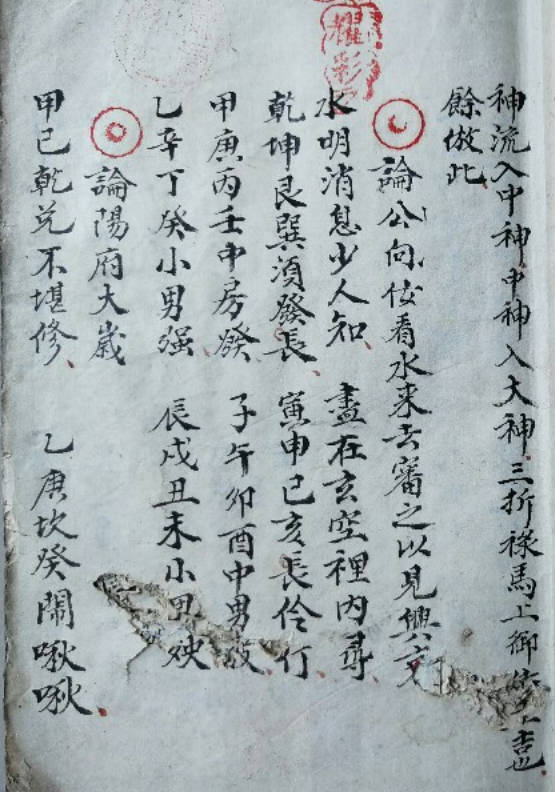 神流入中神中神入大神三折祿馬上御街 吉也
餘倣此
論公向傍看水来去審之以見興
水明消息少人知 盡在玄空裡内尋
乾坤艮巽須發長 寅申巳亥長伶仃
甲庚丙壬中房發 子午卯酉中男
乙辛丁癸小男强 辰戌丑未小男殃
論陽府大歲
甲己乾兑不堪修 乙庚坎癸鬧啾啾
耀彩